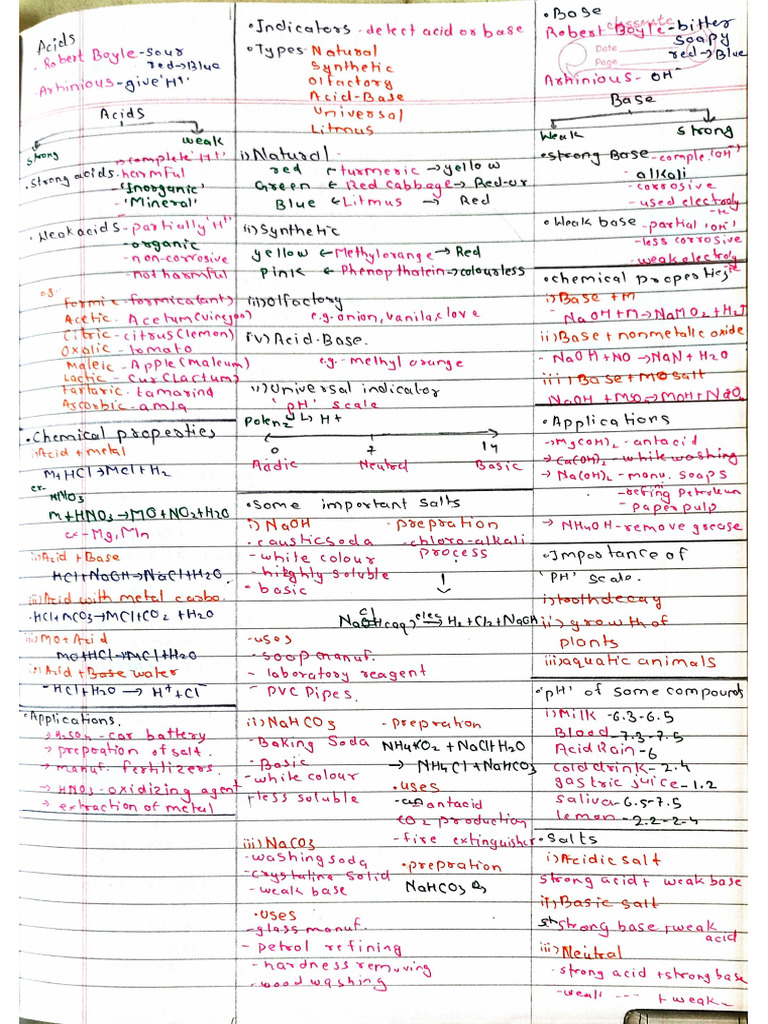 Acids
- Robert Boyle - sour
red → Blue
- Arhinious - give 'H+'
Acids
strong
weak
• Strong acids - complete 'H+'
- harmful
- 'Inorganic'
- 'Mineral'
• Weak acids - partially 'H+'
- organic
- non-corrosive
- not harmful
eg.
Formic - formica (ant)
Acetic - Acetum (vinegar)
Citric - citrus (lemon)
Oxalic - tomato
Maleic - Apple (maleum)
Lactic - Curd (lactum)
Tartaric - tamarind
Ascorbic - amla
• Chemical properties
i) Acid + metal
M + HCl → MCl + H2
ex- HNO3
M + HNO3 → MO + NO2 + H2O
ex - Mg, Mn
ii) Acid + Base
HCl + NaOH → NaCl + H2O
iii) Acid with metal carbo.
HCl + MCO3 → MCl + CO2 + H2O
iii) MO + Acid
MO + HCl → MCl + H2O
iv) Acid + Base water
- HCl + H2O → H+ + Cl-
• Applications.
→ H2SO4 - car battery
→ prepration of salt.
→ manuf. fertilizers.
→ HNO3 - oxidizing agent
→ extraction of metal
• Indicators - detect acid or base
• Types - Natural
Synthetic
Olfactory
Acid-Base
Universal
Litmus
i) Natural
red ← turmeric → yellow
Green ← Red cabbage → Red-or
Blue ← Litmus → Red
ii) Synthetic
yellow ← Methyl orange → Red
Pink ← Phenopthalein → colourless
iii) Olfactory
e.g. onion, vanila, clove
iv) Acid-Base.
e.g. - methyl orange
v) Universal indicator
'pH' scale
Potenz ↳ H+
0 7 14
Acidic Neutral Basic
• Some important salts
i) NaOH
- caustic soda
- white colour
- highly soluble
- basic
• prepration
- chloro-alkali
process
↓
NaCl (aq) elec → H2 + Cl2 + NaOH
- uses
- soap manuf.
- laboratory reagent
- PVC Pipes.
ii) NaHCO3
- Baking Soda
- Basic
- white colour
+ less soluble
- prepration
NH4 + CO2 + NaCl + H2O
→ NH4Cl + NaHCO3
• uses
- an antacid
CO2 production
- fire extinguisher
iii) NaCO3
- washing soda
- crystaline solid
- weak base
• prepration
NaHCO3
• uses
- glass manuf.
- petrol refining
- hardness removing
- wood washing
• Base
classmate
Date
Page
Robert Boyle - bitter
soapy
red → Blue
Arhinious - OH-
Base
Weak
strong
• strong Base - comple. (OH-)
- alkali
- corrosive
- used electroly
• Weak base - partial 'OH-'
- less corrosive
- weak electroly
• chemical properties
i) Base + M
- NaOH + M → NaMO2 + H2↑
ii) Base + nonmetalic oxide
- NaOH + NO → NaN + H2O
iii) Base + MO salt
NaOH + MSO → MOH + NaO
• Applications
→ Mg(OH)2 - antacid
→ Ca(OH)2 - white washing
→ Na(OH)2 - manu. soaps
- refing Petroleum
- Paper pulp
→ NH4OH - remove grease
• Importance of
'PH' scale.
i) tooth decay
ii) growth of
plants
iii) aquatic animals
• 'pH' of some compounds
i) Milk - 6.3-6.5
Blood - 7.3-7.5
Acid Rain - 6
cold drink - 2.4
gastric juice - 1.2
saliva - 6.5-7.5
lemon - 2.2-2.4
• Salts
i) Acidic salt
strong acid + weak base
ii) Basic salt
strong base + weak
acid
iii) Neutral
- strong acid + strong base
- weak --- + weak ~